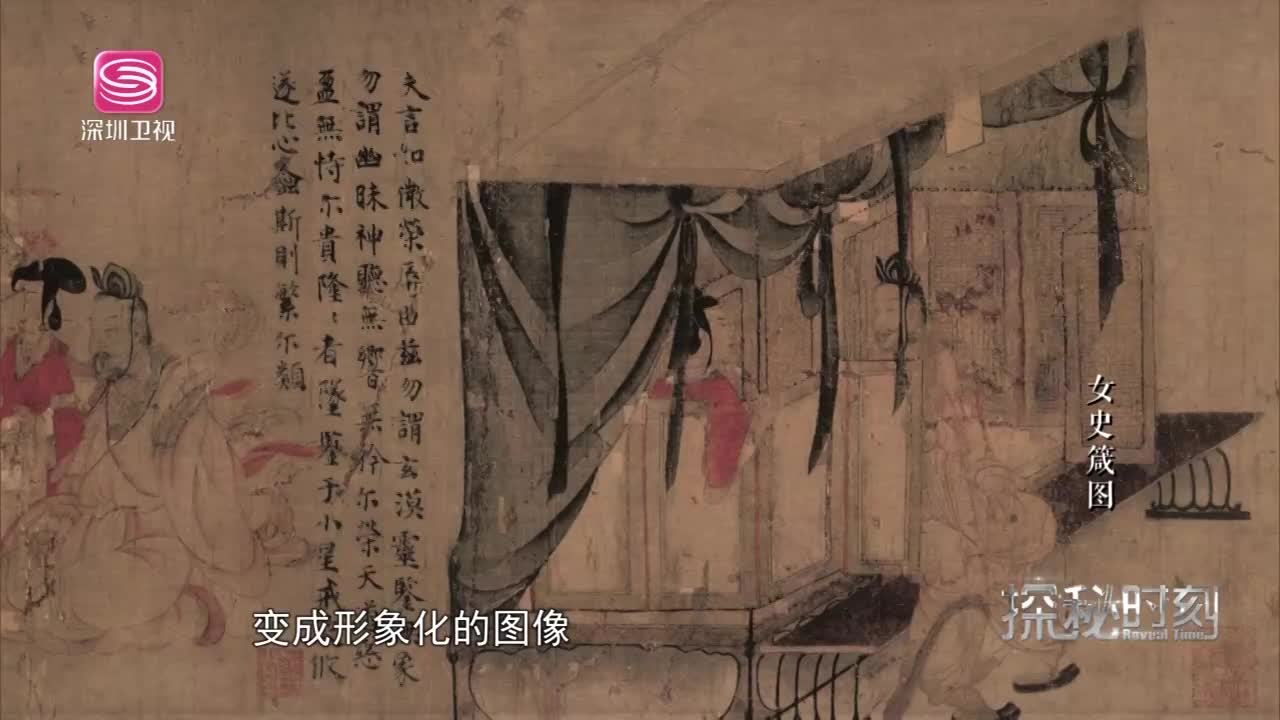 深圳卫视
夫言如微榮辱由茲勿謂玄漠靈鑒象
勿謂幽昧神聽無響無矜尔榮天道惡
盈無恃尔貴隆〻者墜鑒于小星戒彼攸
遂比心螽斯則繁尔類
女史箴图
变成形象化的图像
探秘时刻
Reveal Time